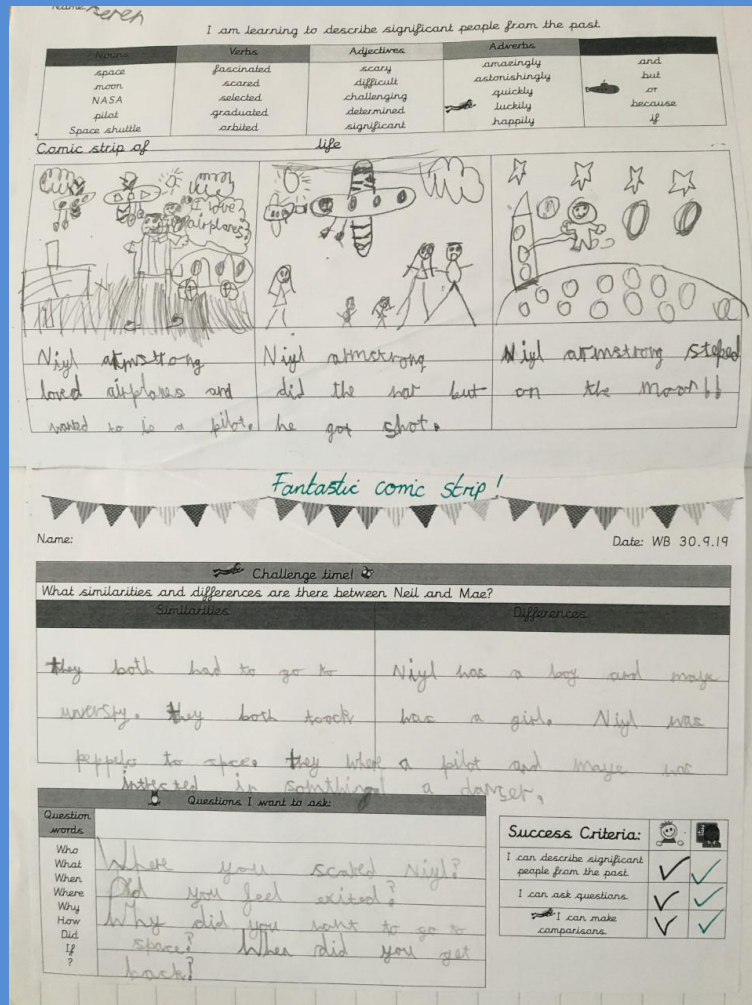 Name:
I am learning to describe significant people from the past
Nouns Verbs Adjectives Adverbs
space fascinated scary amazingly and
moon scared difficult astonishingly but
NASA selected challenging quickly or
pilot graduated determined luckily because
Space shuttle orbited significant happily if
Comic strip of life
I love airplanes
Niyl armstrong
loved airplanes and
wanted to be a pilot.
Niyl armstrong
did the war but
he got shot.
Niyl armstrong steped
on the moon!!
Fantastic comic strip!
Name:
Date: WB 30.9.19
Challenge time!
What similarities and differences are there between Neil and Mae?
Similarities Differences
they both had to go to
unversty. they both toock
peppelo to space they where
in somthing
Niyl was a boy and maye
was a girl. Niyl was
a pilot and maye was
a danser.
Questions I want to ask:
Question
words
Who
What
When
Where
Why
How
Did
If
?
Where you scared Niyl?
Did you feel exited?
Why did you want to go to
space? When did you get
back?
Success Criteria:
I can describe significant
people from the past
I can ask questions.
I can make
comparisons.